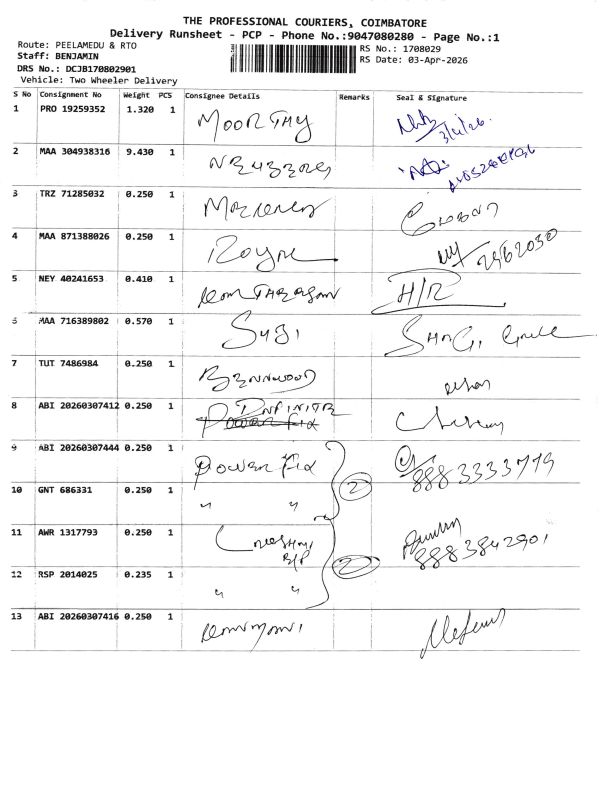 THE PROFESSIONAL COURIERS, COIMBATORE
Delivery Runsheet - PCP - Phone No.:9047080280 - Page No.:1
Route: PEELAMEDU & RTO
RS No.: 1708029
Staff: BENJAMIN
RS Date: 03-Apr-2026
DRS No.: DCJB170802901
Vehicle: Two Wheeler Delivery
S No Consignment No Weight PCS Consignee Details Remarks Seal & Signature
1 PRO 19259352 1.320 1 MOORTHY 3/4/26
2 MAA 304938316 9.430 1
3 TRZ 71285032 0.250 1
4 MAA 871388026 0.250 1 Royal 2962030
5 NEY 40241653 0.410 1 H/R
6 MAA 716389802 0.570 1 SUJI
7 TUT 7486984 0.250 1 BENNWOOD
8 ABI 20260307412 0.250 1 INFINITE
9 ABI 20260307444 0.250 1 Power Fix 8883333779
10 GNT 686331 0.250 1 " " 2
11 AWR 1317793 0.250 1 B/P 8883842901
12 RSP 2014025 0.235 1 " " 2
13 ABI 20260307416 0.250 1